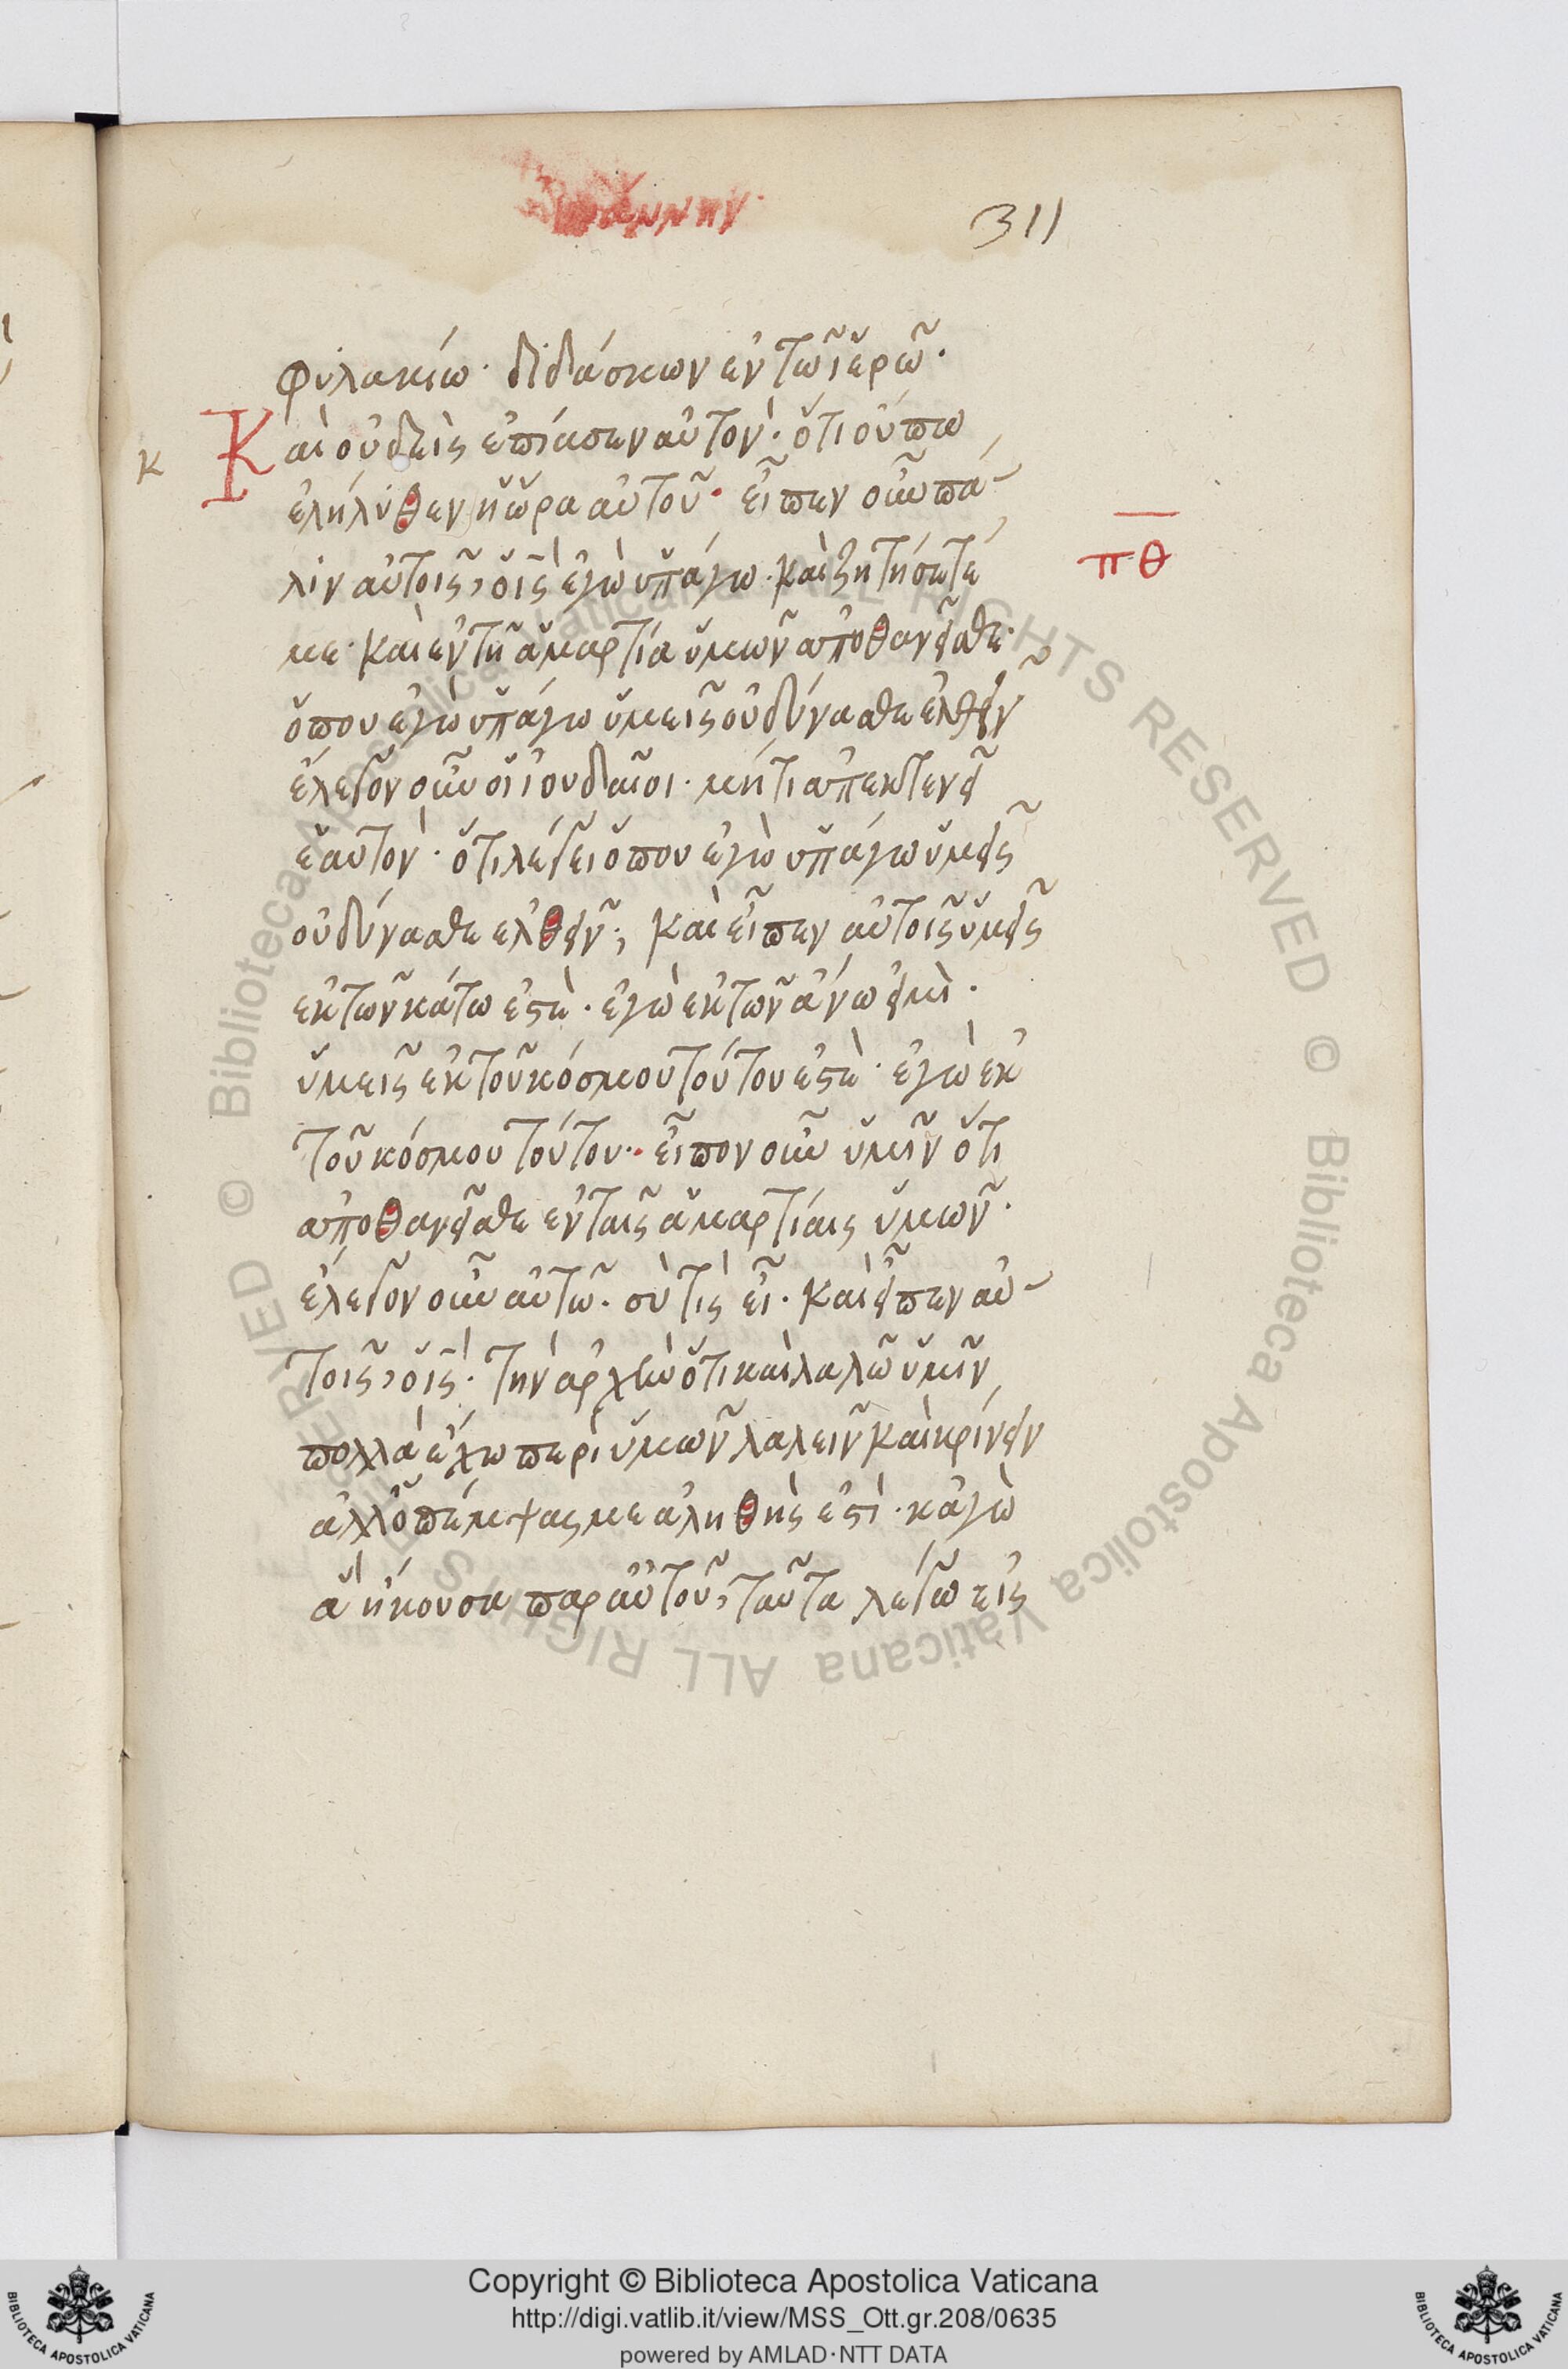 311
φυλακίω· διδάσκων ἐν τῶ ἱερῶ·
κ Καὶ οὐδεὶς ἐπίασεν αὐτὸν· ὅτι οὔπω
ἐληλύθεν ἡ ὥρα αὐτοῦ· εἶπεν οὖν πά
λιν αὐτοῖς, ὁ ις· ἐγὼ ὑπάγω· καὶ ζητήσετέ
πθ
με· καὶ ἐν τῆ ἁμαρτία ὑμῶν ἀποθανεῖσθε·
ὅπου ἐγὼ ὑπάγω ὑμεῖς οὐ δύνασθε ἐλθεῖν
ἔλεγον οὖν οἱ ἰουδαῖοι· μήτι ἀπεκτενεῖ
ἑαυτὸν· ὅτι λέγει ὅπου ἐγὼ ὑπάγω ὑμεῖς
οὐ δύνασθε ἐλθεῖν; καὶ εἶπεν αὐτοῖς ὑμεῖς
ἐκ τῶν κάτω ἐστὲ· ἐγὼ ἐκ τῶν ἄνω εἰμὶ·
ὑμεῖς ἐκ τοῦ κόσμου τούτου ἐστὲ· ἐγὼ ἐκ
τοῦ κόσμου τούτου· εἶπον οὖν ὑμῖν ὅτι
ἀποθανεῖσθε ἐν ταῖς ἁμαρτίαις ὑμῶν·
ἔλεγον οὖν αὐτῶ· σὺ τὶς εἶ· καὶ εἶπεν αὐ
τοῖς, ὁ ις· τὴν ἀρχὴν ὅτι καὶ λαλῶ ὑμῖν
πολλὰ ἔχω περὶ ὑμῶν λαλεῖν καὶ κρίνειν
ἀλλ ὁ πέμψας με ἀληθὴς ἐστὶ· κἀγὼ
ἃ ἤκουσα παρ αὐτοῦ, ταῦτα λέγω εἰς
Copyright © Biblioteca Apostolica Vaticana
http://digi.vatlib.it/view/MSS_Ott.gr.208/0635
powered by AMLAD·NTT DATA